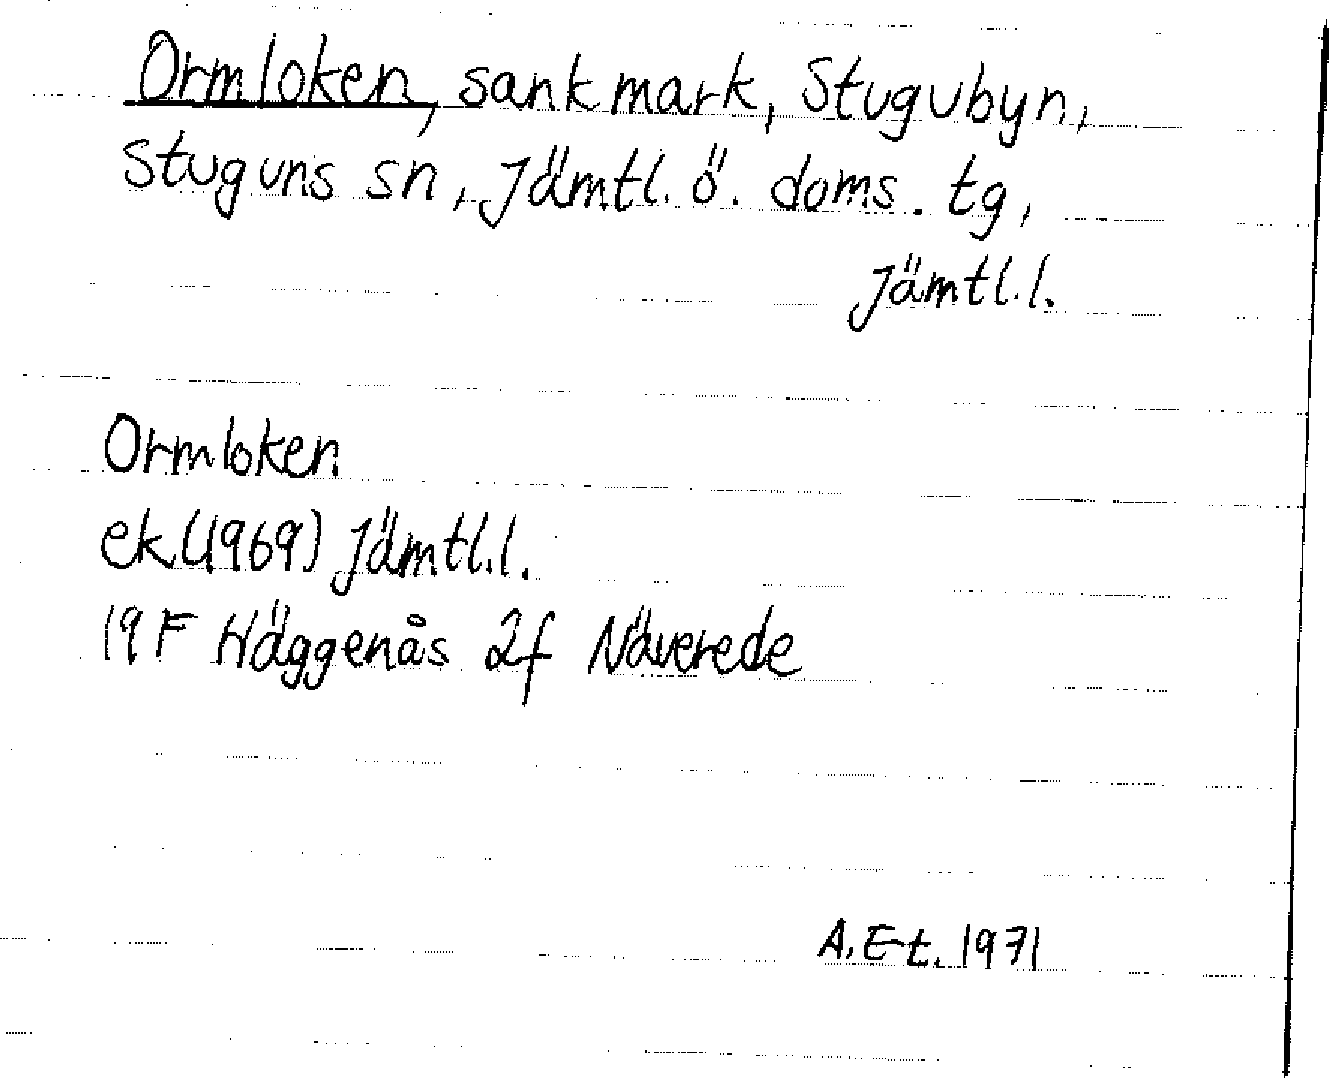 Ormloken, sank mark, Stugubyn,
Stuguns sn, Jämtl. ö. doms. tg,
Jämtl.l.
Ormloken
ek(1969) Jämtl.l.
19F Häggenås 2f Näverede
A.E-t. 1971